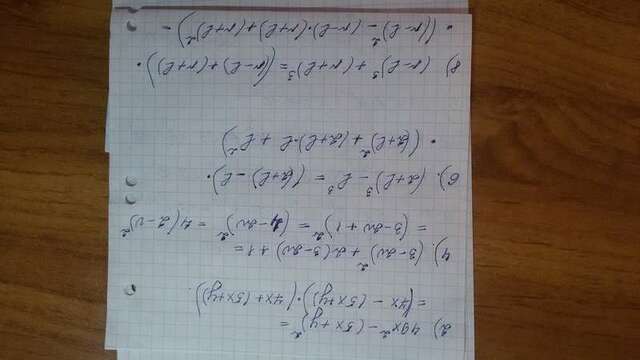 2) 49x² - (5x+y)² =
= (7x - (5x+y))·(7x+(5x+y)).
4). (3-2v)² + 2(3-2v)+1 =
= (3-2v+1)² = (4-2v)² = 4(2-v)²
6). (a+b)³ - b³ = ((a+b) - b)·
·((a+b)² + (a+b)·b + b²)
8) (a-b)³ + (a+b)³ = ((a-b) + (a+b))·
·((a-b)² - (a-b)·(a+b) + (a+b)²) -